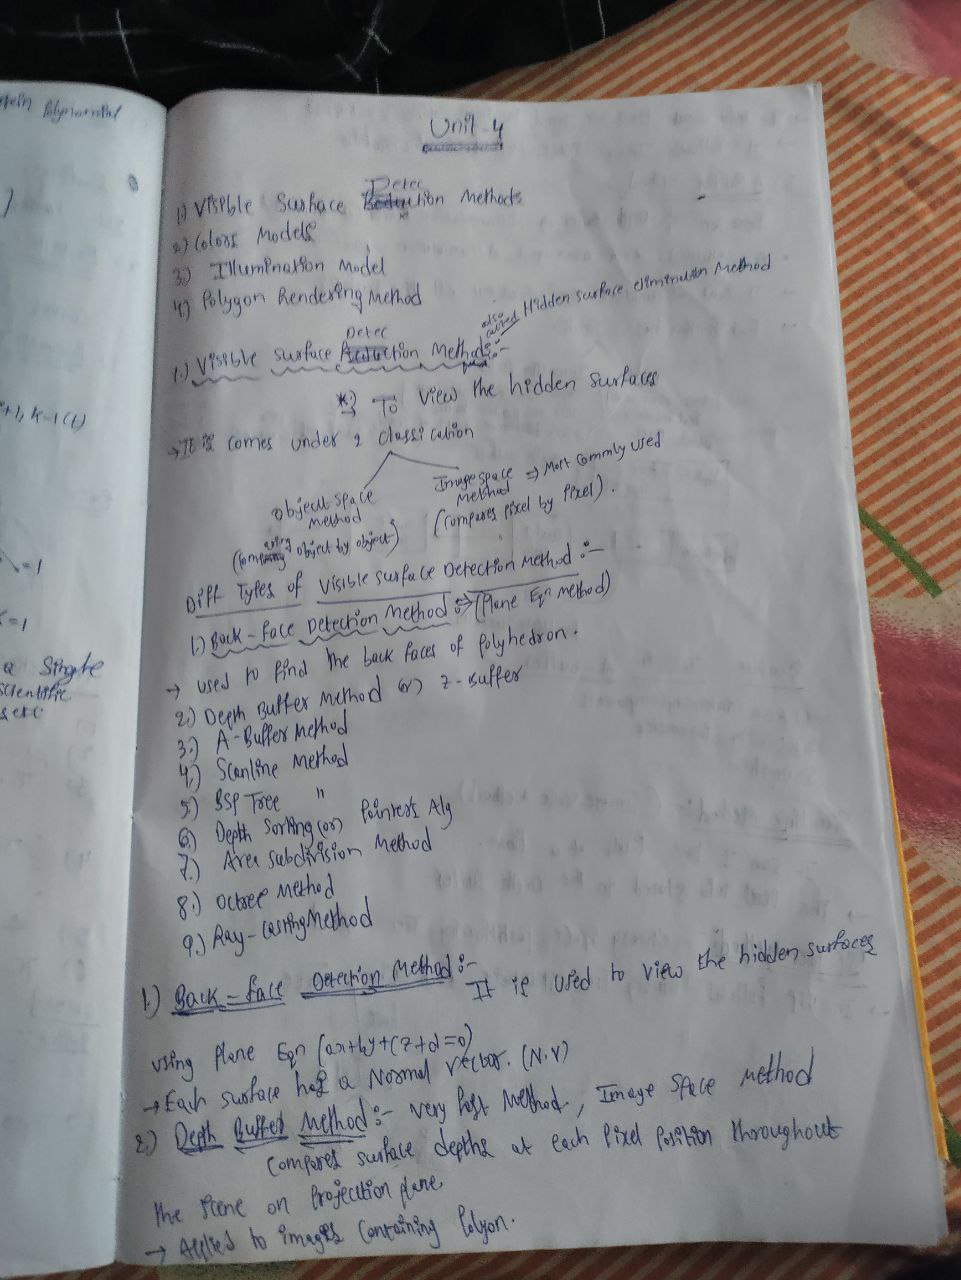 Unit-4
1) Visible Surface Detection Methods
2) Colors Models
3) Illumination Model
4) Polygon Rendering Method
1.) Visible surface Detection Methods:- also called Hidden surface elimination Method
*) To View the hidden Surfaces
→ It is comes under 2 classification
Object space method
Image space method ⇒ Most commly used
(Comparing using object by object)
(Compares pixel by Pixel).
Diff Types of Visible surface Detection Method :-
1.) Back-face Detection Method :⇒ (Plane Eqn Method)
→ used to find the back faces of polyhedron.
2.) Depth Buffer Method (or) Z-Buffer
3.) A-Buffer Method
4.) Scanline Method
5) BSP Tree "
6) Depth Sorting (or) Painters Alg
7.) Area subdivision Method
8.) octree Method
9.) Ray-casting Method
1) Back-face Detection Method :- It is used to view the hidden surfaces
using Plane Eqn (ax+by+cz+d=0)
→ Each surface has a Normal vector. (N.V)
2.) Depth Buffer Method :- very fast Method, Image Space method
compares surface depths at each Pixel Position throroughout
the scene on Projection plane.
→ Applied to images containing Polyon.
Polynomial
)
+1, k-1(t)
=1
=1
a Single
scientific